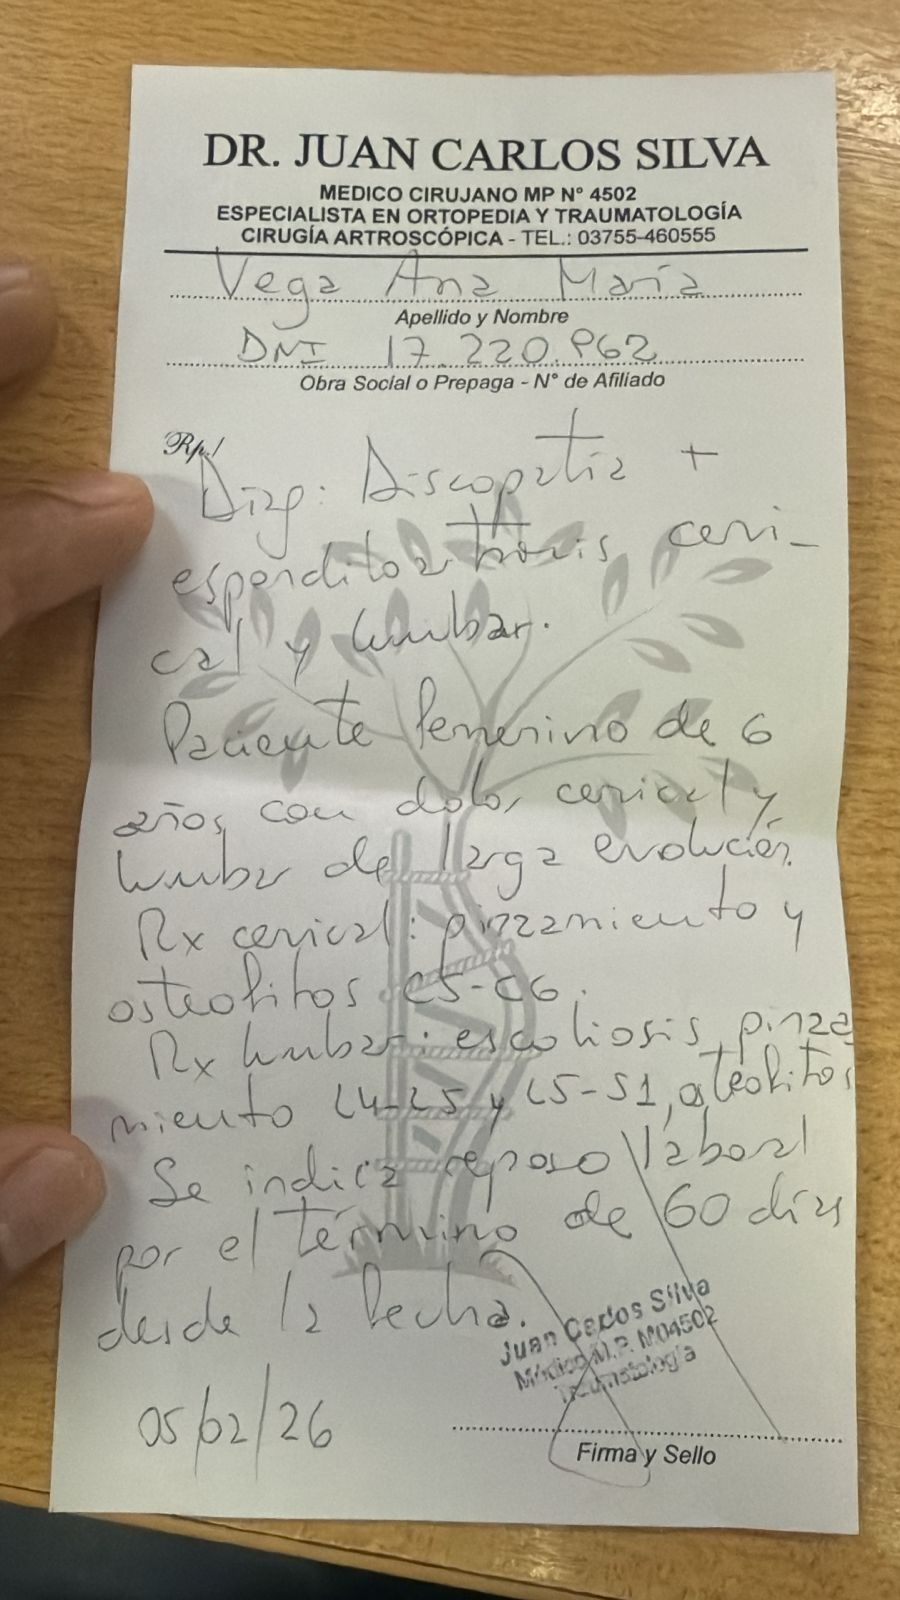 DR. JUAN CARLOS SILVA
MEDICO CIRUJANO MP N° 4502
ESPECIALISTA EN ORTOPEDIA Y TRAUMATOLOGÍA
CIRUGÍA ARTROSCÓPICA - TEL.: 03755-460555
Vega Ana María
Apellido y Nombre
DNI 17.220.962
Obra Social o Prepaga - N° de Afiliado
Rp./
Diag: Discopatía +
espondiloartrosis cervi-
cal y lumbar.
Paciente femenino de 6
años con dolor cervical y
lumbar de larga evolución.
Rx cervical: pinzamiento y
osteofitos C5-C6.
Rx lumbar: escoliosis, pinza
miento L4-L5 y L5-S1, osteofitos
Se indica reposo laboral
por el término de 60 días
desde la fecha.
Juan Carlos Silva
Médico M.P. M04502
Traumatología
05/02/26
Firma y Sello